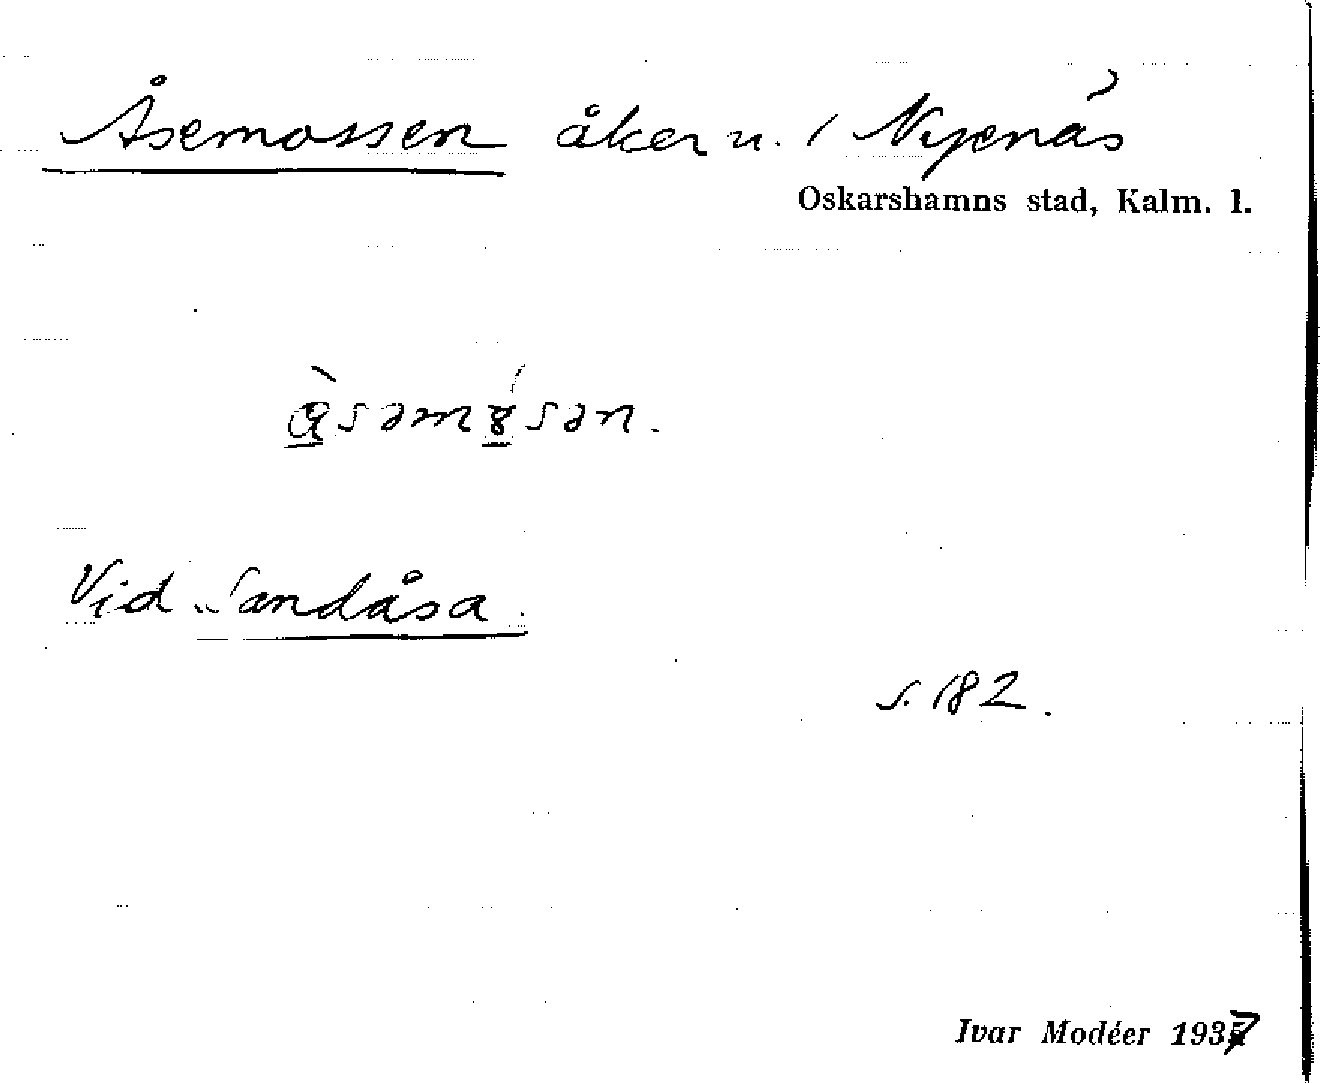 Åsemossen åker u. / Nyenäs
Oskarshamns stad, Kalm. l.
Vid Sandåsa.
s. 182.
Ivar Modéer 1937